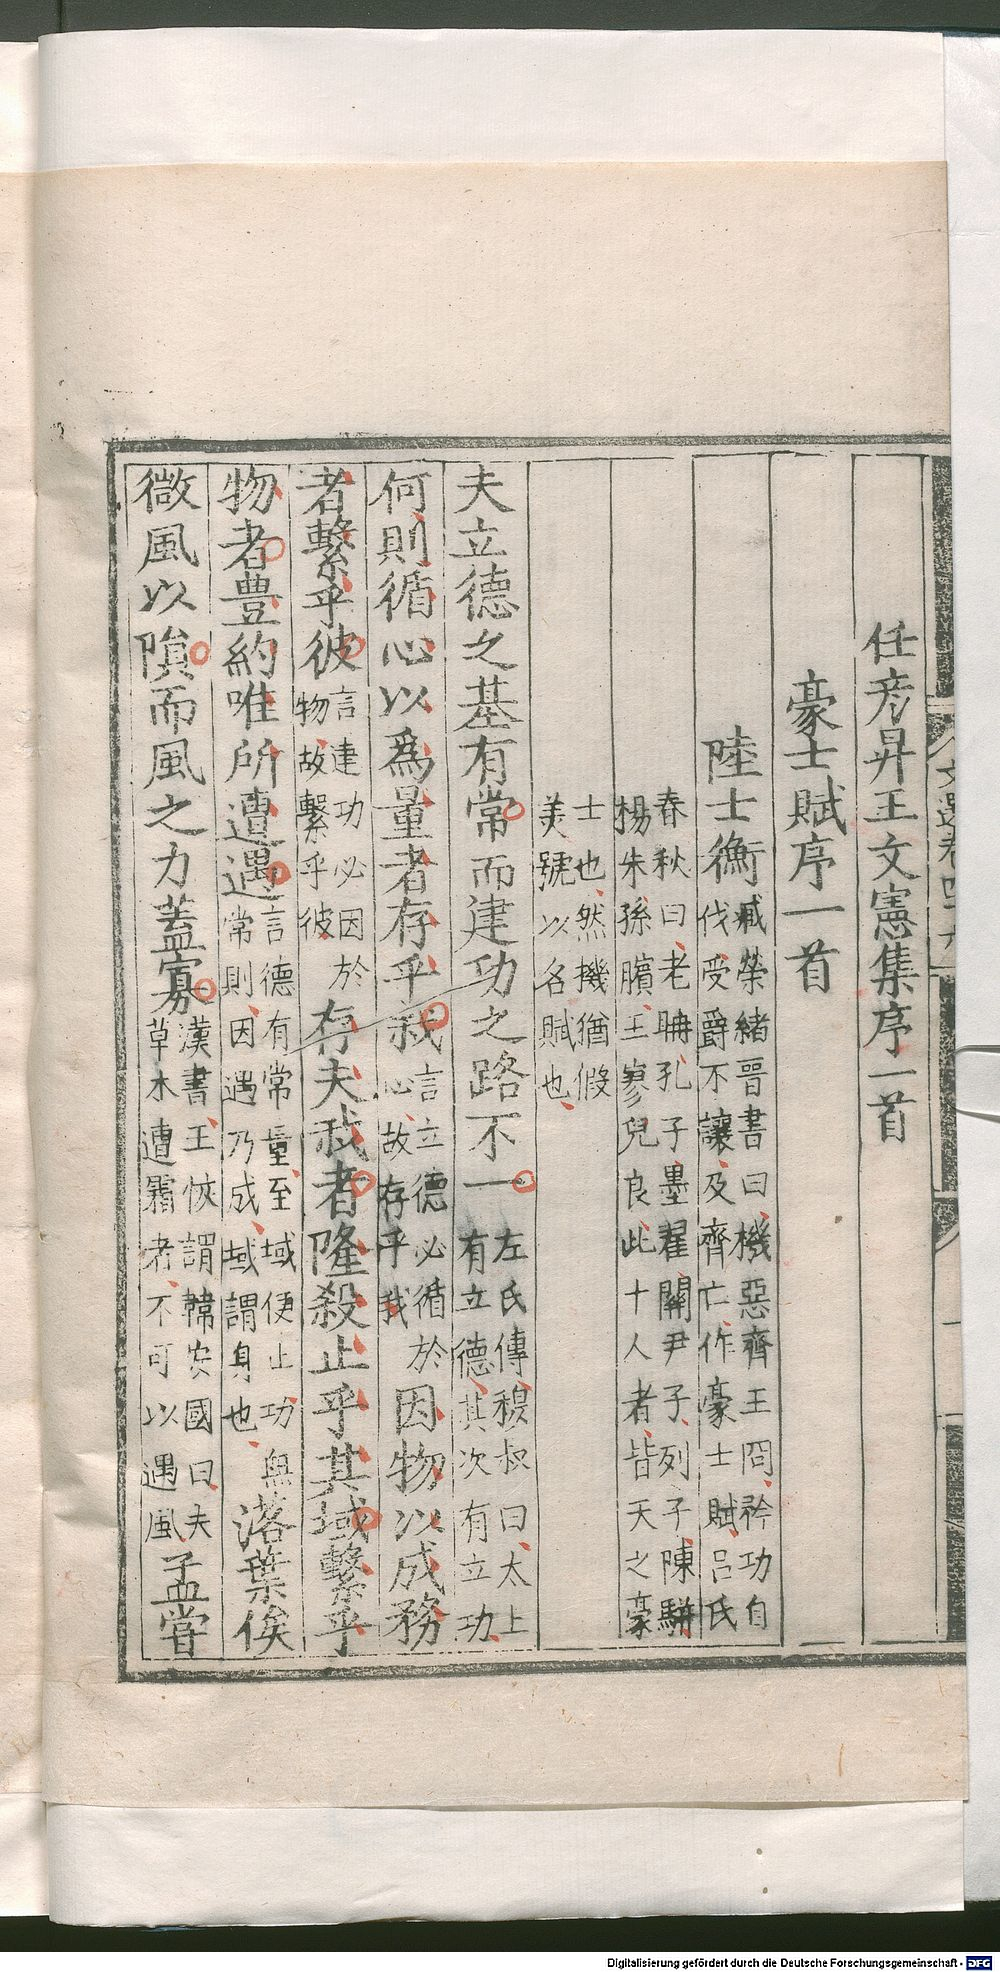 任彦昇王文憲集序一首
豪士賦序一首
陸士衡
臧榮緒晉書曰機惡齊王冏矜功自
伐受爵不讓及齊亡作豪士賦呂氏
春秋曰老聃孔子墨翟關尹子列子陳駢
楊朱孫臏王寥兒良此十人者皆天之豪
士也然機猶假
美號以名賦也
夫立德之基有常而建功之路不一
左氏傳穆叔曰太上
有立德其次有立功
何則循心以為量者存乎我
言立德必循於
心故存乎我
因物以成務
者繫乎彼
言建功必因於
物故繫乎彼
存夫我者隆殺止乎其域繫乎
物者豊約唯所遭遇
言德有常量至域便止功無
常則因遇乃成域謂身也
落葉俟
微風以隕而風之力蓋寡
漢書王恢謂韓安國曰夫
草木遭霜者不可以遇風
孟嘗
文選卷四十六
Digitalisierung gefördert durch die Deutsche Forschungsgemeinschaft - DFG